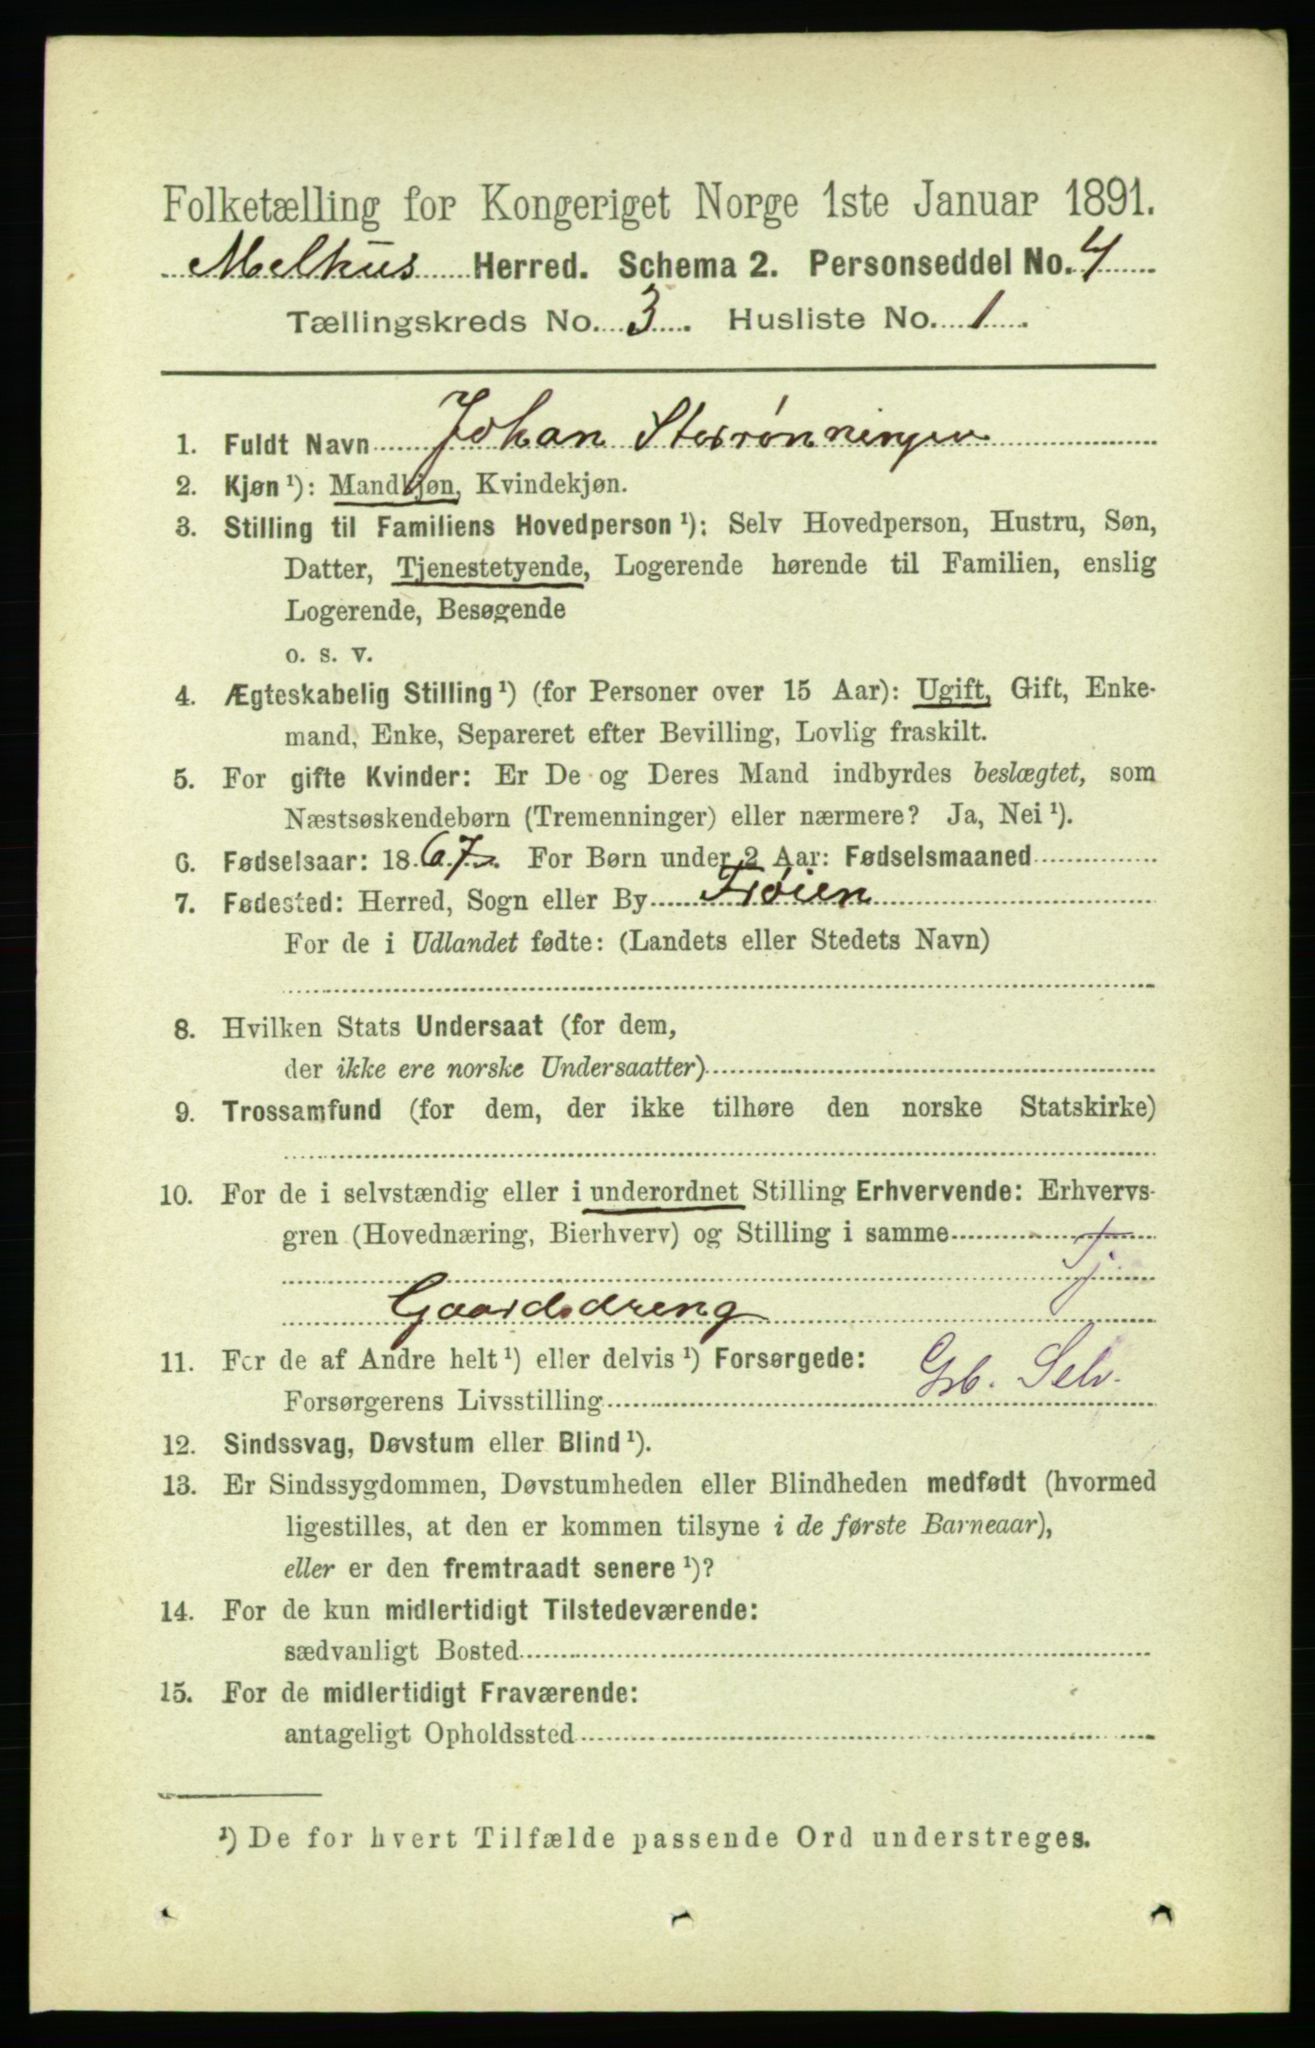 Folketælling for Kongeriget Norge 1ste Januar 1891.
Melhus Herred. Schema 2. Personseddel No. 4
Tællingskreds No. 3. Husliste No. 1.
1. Fuldt Navn Johan Storrønningen
2. Kjøn ¹): Mandkjøn, Kvindekjøn.
3. Stilling til Familiens Hovedperson ¹): Selv Hovedperson, Hustru, Søn,
Datter, Tjenestetyende, Logerende hørende til Familien, enslig
Logerende, Besøgende
o. s. v.
4. Ægteskabelig Stilling ¹) (for Personer over 15 Aar): Ugift, Gift, Enke-
mand, Enke, Separeret efter Bevilling, Lovlig fraskilt.
5. For gifte Kvinder: Er De og Deres Mand indbyrdes beslægtet, som
Næstsøskendebørn (Tremenninger) eller nærmere? Ja, Nei ¹).
6. Fødselsaar: 1867. For Børn under 2 Aar: Fødselsmaaned
7. Fødested: Herred, Sogn eller By Frøien
For de i Udlandet fødte: (Landets eller Stedets Navn)
8. Hvilken Stats Undersaat (for dem,
der ikke ere norske Undersaatter)
9. Trossamfund (for dem, der ikke tilhøre den norske Statskirke)
10. For de i selvstændig eller i underordnet Stilling Erhvervende: Erhvervs-
gren (Hovednæring, Bierhverv) og Stilling i samme
Tj
Gaardsdreng
11. For de af Andre helt ¹) eller delvis ¹) Forsørgede:
Grb. Selv.
Forsørgerens Livsstilling
12. Sindssvag, Døvstum eller Blind ¹).
13. Er Sindssygdommen, Døvstumheden eller Blindheden medfødt (hvormed
ligestilles, at den er kommen tilsyne i de første Barneaar),
eller er den fremtraadt senere ¹)?
14. For de kun midlertidigt Tilstedeværende:
sædvanligt Bosted
15. For de midlertidigt Fraværende:
antageligt Opholdssted
¹) De for hvert Tilfælde passende Ord understreges.